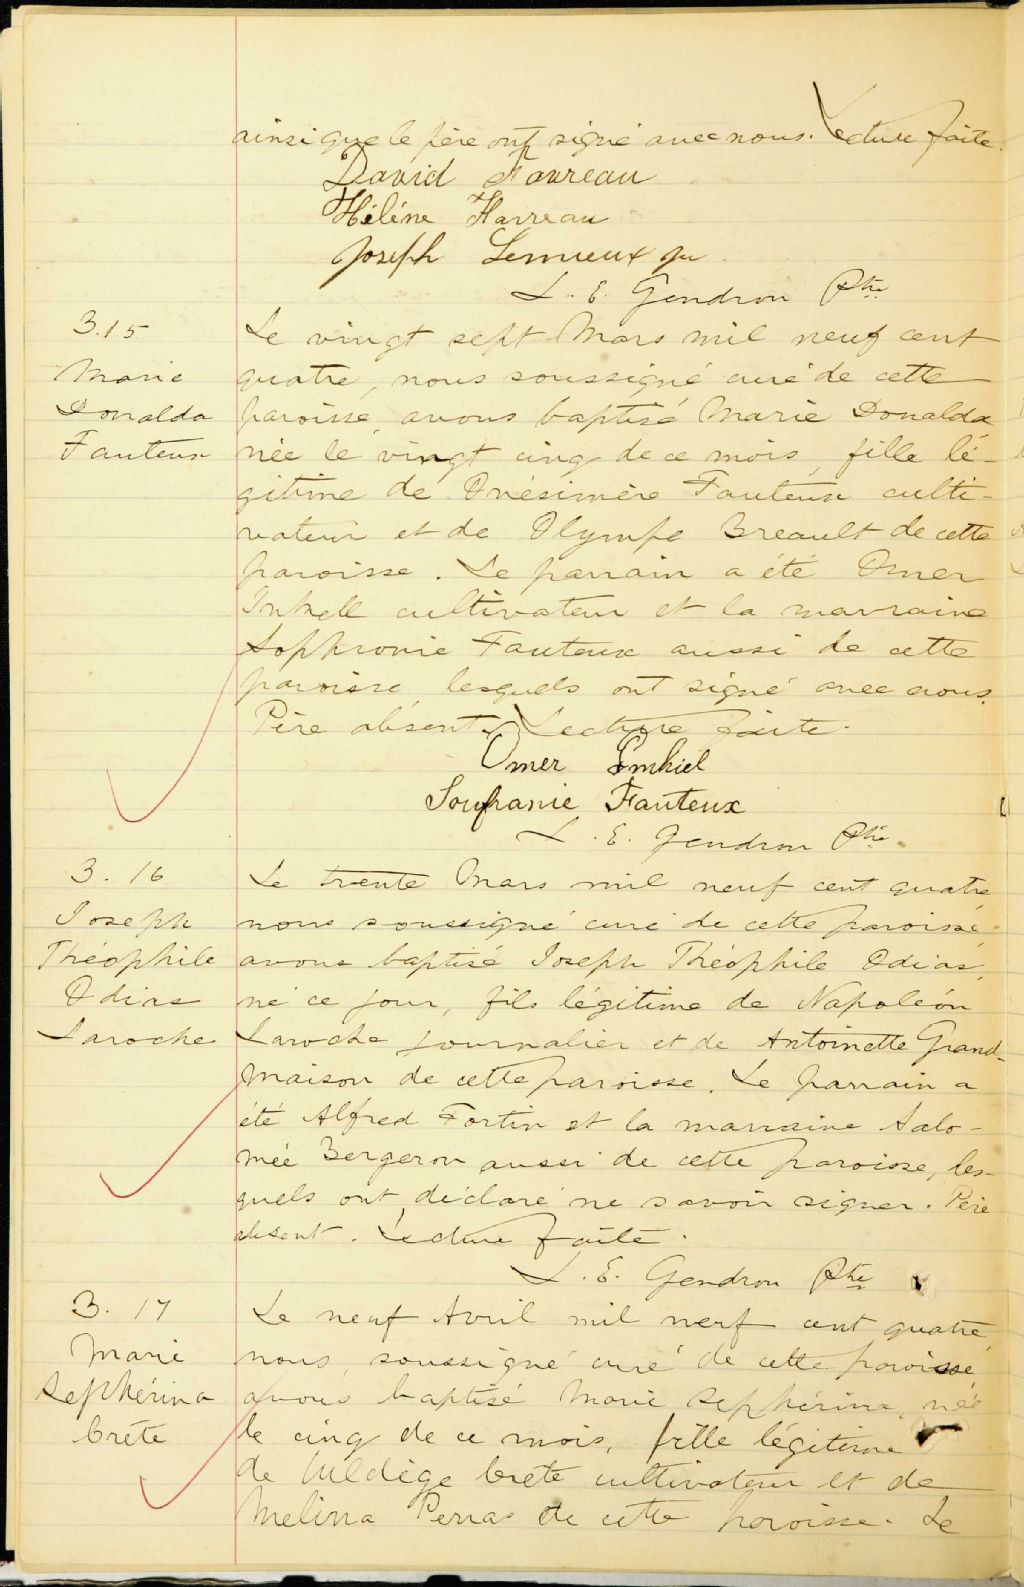 ainsi que le père ont signé avec nous. Lecture faite.
David Favreau
Hélène Harreau
Joseph Lemieux
L. E. Gendron Ptre
B. 15
Marie
Donalda
Fauteux
Le vingt sept Mars mil neuf cent
quatre, nous soussigné curé de cette
paroisse, avons baptisé Marie Donalda
née le vingt cinq de ce mois, fille lé-
gitime de Onésimère Fauteux culti-
vateur et de Olympe Breault de cette
paroisse. Le parrain a été Omer
cultivateur et la marraine
Sophronie Fauteux aussi de cette
paroisse lesquels ont signé avec nous.
Père absent. Lecture faite.
Omer Emkiel
Souphranie Fauteux
L. E. Gendron Ptre.
B. 16
Joseph
Théophile
Odias
Laroche
Le trente Mars mil neuf cent quatre
nous soussigné curé de cette paroisse
avons baptisé Joseph Théophile Odias,
né ce jour, fils légitime de Napoléon
Laroche journalier et de Antoinette Grand-
maison de cette paroisse. Le parrain a
été Alfred Fortin et la marraine Salo-
mée Bergeron aussi de cette paroisse, les-
quels ont déclaré ne savoir signer. Père
absent. Lecture faite.
L. E. Gendron Ptre
B. 17
Marie
Sephérina
Crête
Le neuf Avril mil neuf cent quatre
nous soussigné curé de cette paroisse
avons baptisé Marie Sephérina, née
le cinq de ce mois, fille légitime
de Uldège Crête cultivateur et de
Melina Perras de cette paroisse. Le